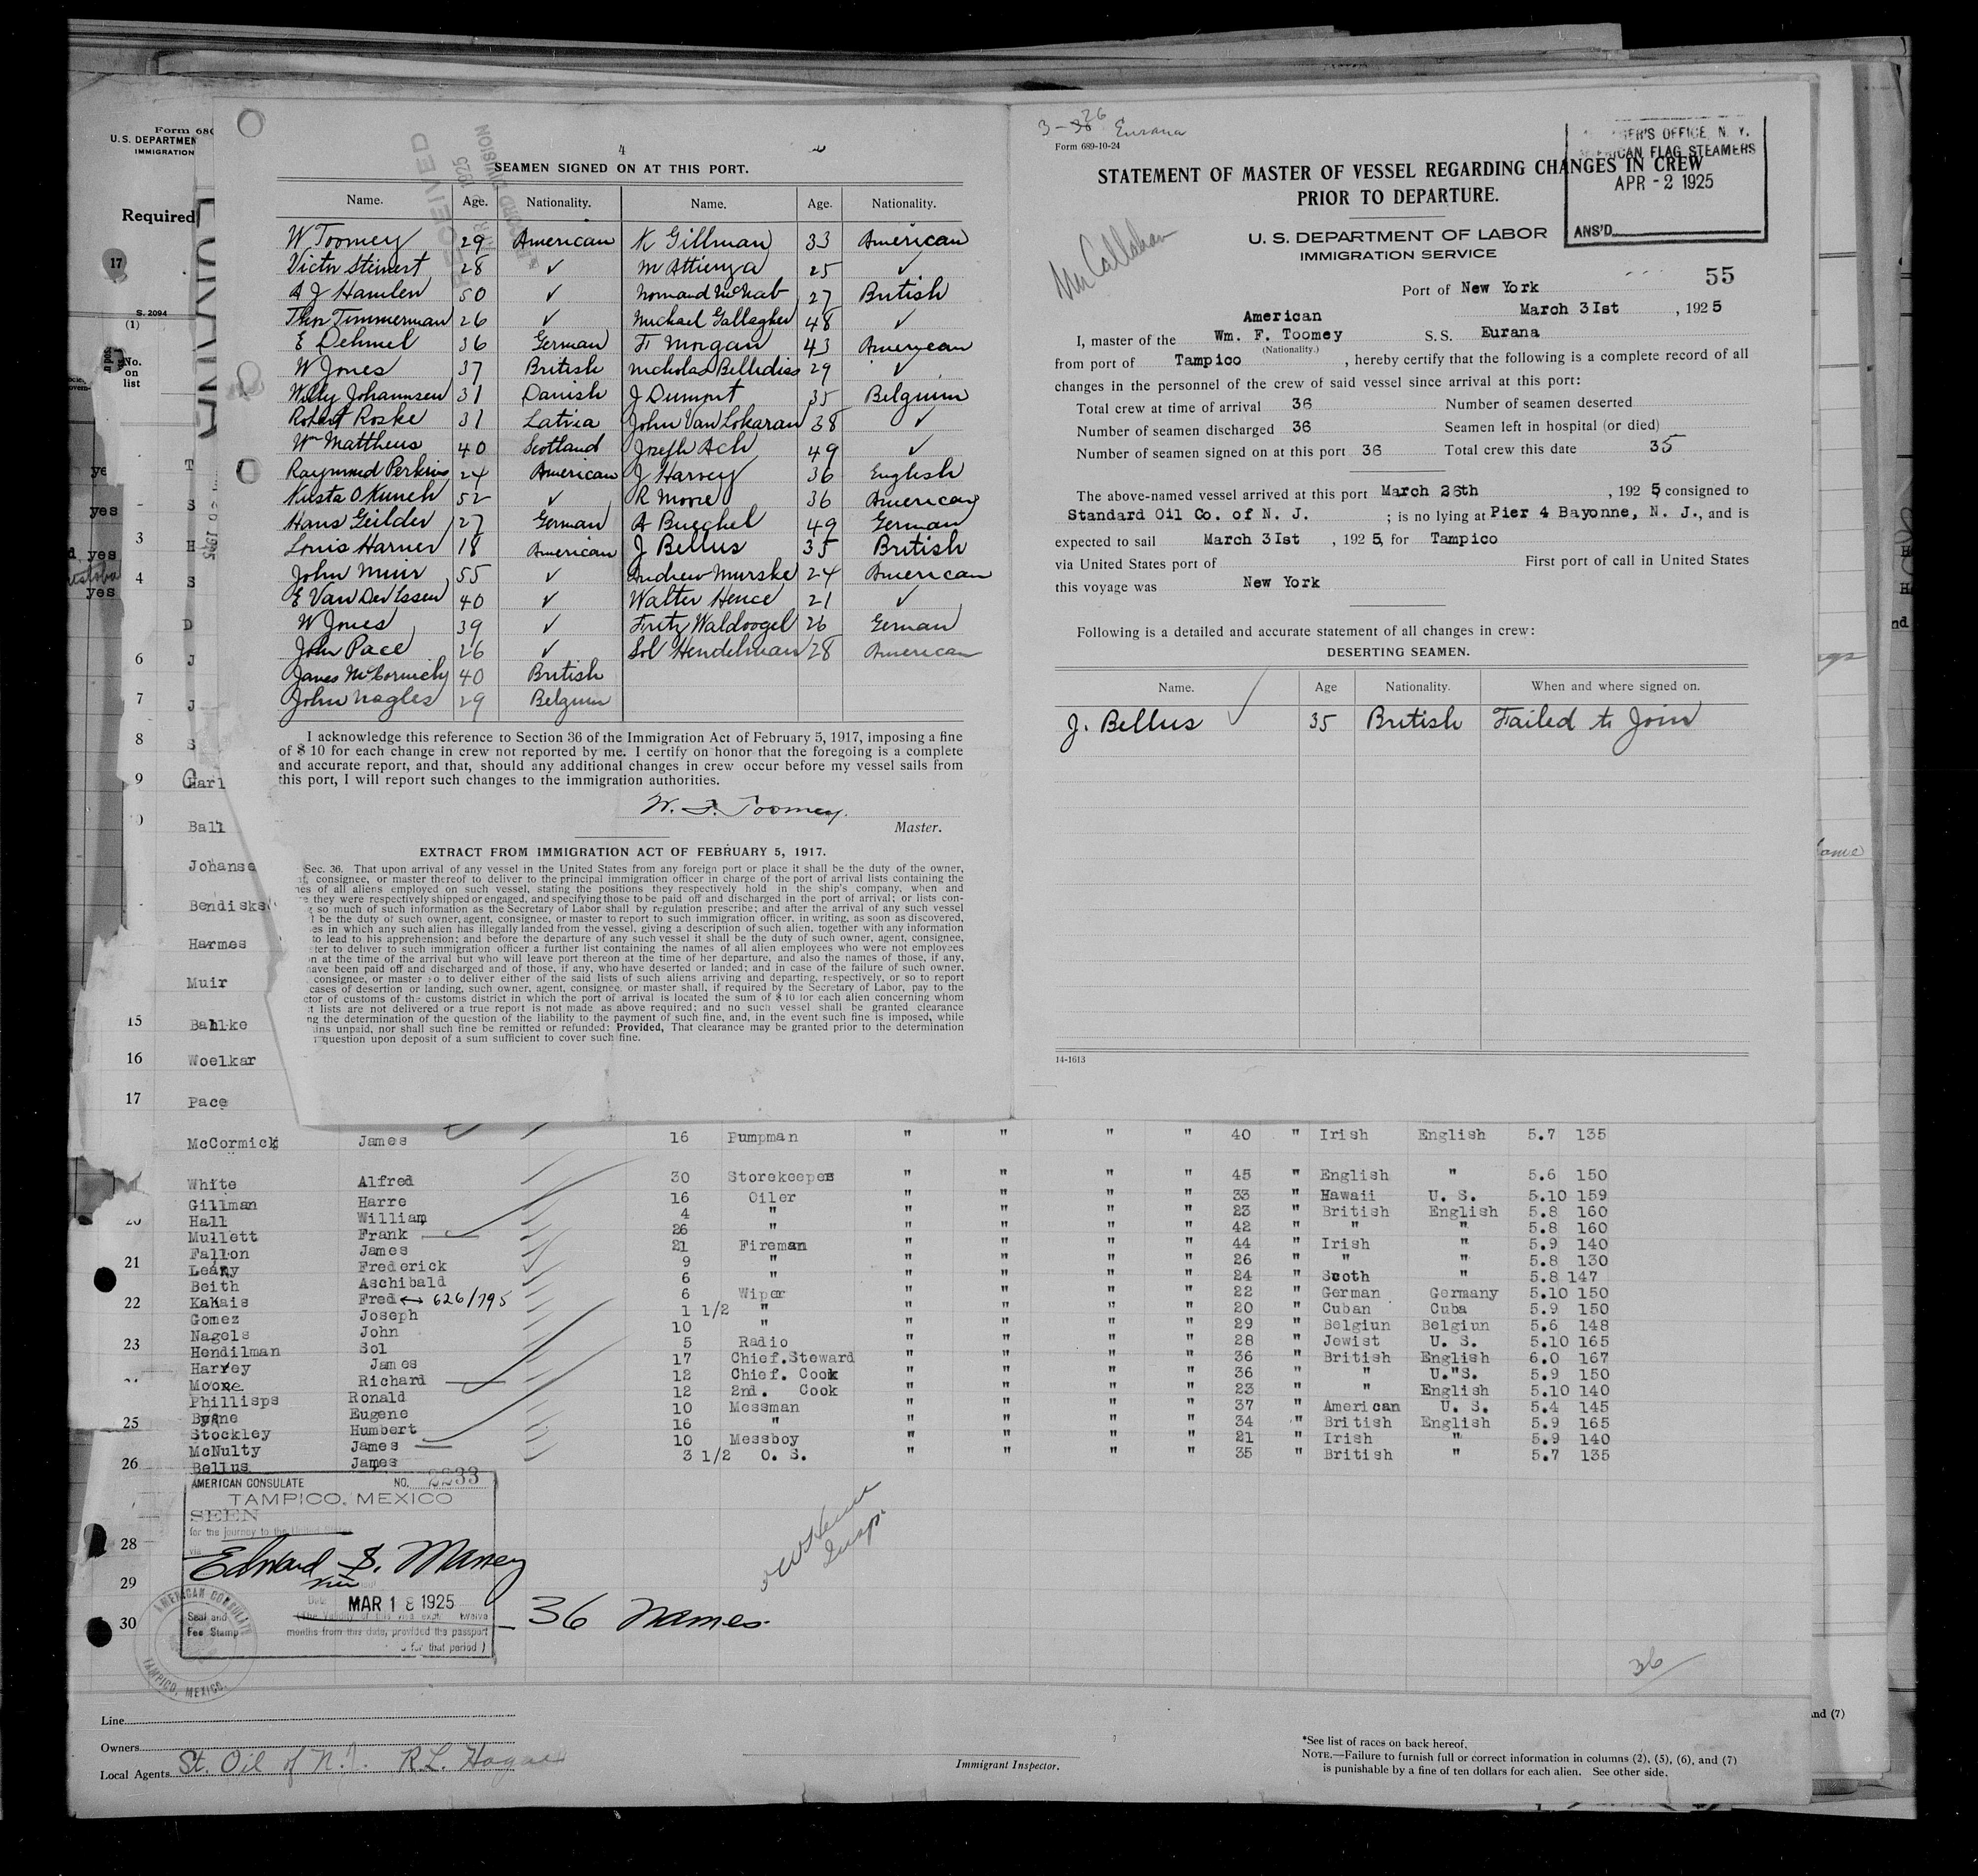 Form 68
U. S. DEPARTMEN
IMMIGRATION
Required
17
S. 2094
(1)
No.
on
list
4
SEAMEN SIGNED ON AT THIS PORT.
RECEIVED
1925
RECORD DIVISION
Name. Age. Nationality. Name. Age. Nationality.
W Toomey 29 American K Gillman 33 American
Victor Steinert 28 ✓ M Attienza 25 ✓
A J Hamlen 50 ✓ Normand McNab 27 British
Theo Timmerman 26 ✓ Michael Gallagher 48 ✓
E Dehmel 36 German F Morgan 43 American
W Jones 37 British Nicholas Bellidiss 29 ✓
Willy Johannsen 31 Danish J Dumont 35 Belgium
Robert Roske 31 Latvia John Van Lokaran 38 ✓
Wm Matthews 40 Scotland Joseph Ach 49 ✓
Raymond Perkins 24 American J Harvey 36 English
Kusta O Kunch 52 ✓ R Moore 36 American
Hans Geilder 27 German A Buechel 49 German
Louis Harner 18 American J Bellus 35 British
John Muir 55 ✓ Andrew Murske 24 American
E Van Der Essen 40 ✓ Walter Hence 21 ✓
W Jones 39 ✓ Fritz Waldvogel 26 German
John Pace 26 ✓ Sol Hendelman 28 American
James McCormick 40 British
John Nagles 29 Belgium
I acknowledge this reference to Section 36 of the Immigration Act of February 5, 1917, imposing a fine
of $ 10 for each change in crew not reported by me. I certify on honor that the foregoing is a complete
and accurate report, and that, should any additional changes in crew occur before my vessel sails from
this port, I will report such changes to the immigration authorities.
W. F. Toomey.
Master.
EXTRACT FROM IMMIGRATION ACT OF FEBRUARY 5, 1917.
Sec. 36. That upon arrival of any vessel in the United States from any foreign port or place it shall be the duty of the owner,
consignee, or master thereof to deliver to the principal immigration officer in charge of the port of arrival lists containing the
es of all aliens employed on such vessel, stating the positions they respectively hold in the ship's company, when and
they were respectively shipped or engaged, and specifying those to be paid off and discharged in the port of arrival; or lists con-
so much of such information as the Secretary of Labor shall by regulation prescribe; and after the arrival of any such vessel
be the duty of such owner, agent, consignee, or master to report to such immigration officer, in writing, as soon as discovered,
es in which any such alien has illegally landed from the vessel, giving a description of such alien, together with any information
to lead to his apprehension; and before the departure of any such vessel it shall be the duty of such owner, agent, consignee,
ter to deliver to such immigration officer a further list containing the names of all alien employees who were not employees
n at the time of the arrival but who will leave port thereon at the time of her departure, and also the names of those, if any,
have been paid off and discharged and of those, if any, who have deserted or landed; and in case of the failure of such owner,
consignee, or master so to deliver either of the said lists of such aliens arriving and departing, respectively, or so to report
cases of desertion or landing, such owner, agent, consignee, or master shall, if required by the Secretary of Labor, pay to the
ctor of customs of the customs district in which the port of arrival is located the sum of $ 10 for each alien concerning whom
t lists are not delivered or a true report is not made as above required; and no such vessel shall be granted clearance
ng the determination of the question of the liability to the payment of such fine, and, in the event such fine is imposed, while
ins unpaid, nor shall such fine be remitted or refunded: Provided, That clearance may be granted prior to the determination
question upon deposit of a sum sufficient to cover such fine.
3-26 Eurana
Form 689-10-24
STATEMENT OF MASTER OF VESSEL REGARDING CHANGES IN CREW
PRIOR TO DEPARTURE.
ER'S OFFICE, N. Y.
AMERICAN FLAG STEAMERS
APR - 2 1925
ANS'D
McCallahan
U. S. DEPARTMENT OF LABOR
IMMIGRATION SERVICE
55
Port of New York
March 3Ist , 192 5
American
I, master of the Wm. F. Toomey S.S. Eurana
(Nationality.)
from port of Tampico , hereby certify that the following is a complete record of all
changes in the personnel of the crew of said vessel since arrival at this port:
Total crew at time of arrival 36 Number of seamen deserted
Number of seamen discharged 36 Seamen left in hospital (or died)
Number of seamen signed on at this port 36 Total crew this date 35
The above-named vessel arrived at this port March 26th , 192 5, consigned to
Standard Oil Co. of N. J. ; is no lying at Pier 4 Bayonne, N. J., and is
expected to sail March 3Ist , 192 5, for Tampico
via United States port of First port of call in United States
this voyage was New York
Following is a detailed and accurate statement of all changes in crew:
DESERTING SEAMEN.
Name. Age Nationality. When and where signed on.
J. Bellus ✓ 35 British Failed to Join
14-1613
yes
3
4
yes
6
7
8
9 Carl
Ball
Johanse
Bendisks
Harmes
Muir
15 Bahlke
16 Woelkar
17 Pace
McCormick James 16 Pumpman " " " " 40 " Irish English 5.7 135
White Alfred 30 Storekeeper " " " " 45 " English " 5.6 150
Gillman Harre 16 Oiler " " " " 33 " Hawaii U. S. 5.10 159
Hall William 4 " " " " " 23 " British English 5.8 160
Mullett Frank 26 " " " " " 42 " " " 5.8 160
Fallon James 21 Fireman " " " " 44 " Irish " 5.9 140
21 Leary Frederick 9 " " " " " 26 " " " 5.8 130
Beith Aschibald 6 " " " " " 24 " Scoth " 5.8 147
22 Kakais Fred ↔ 626/795 6 Wiper " " " " 22 " German Germany 5.10 150
Gomez Joseph 1 1/2 " " " " " 20 " Cuban Cuba 5.9 150
Nagels John 10 " " " " " 29 " Belgiun Belgiun 5.6 148
23 Hendilman Sol 5 Radio " " " " 28 " Jewist U. S. 5.10 165
Harvey James 17 Chief.Steward " " " " 36 " British English 6.0 167
Moore Richard 12 Chief. Cook " " " " 36 " " U."S. 5.9 150
Phillisps Ronald 12 2nd. Cook " " " " 23 " " English 5.10 140
Byrne Eugene 10 Messman " " " " 37 " American U. S. 5.4 145
25 Stockley Humbert 16 " " " " " 34 " British English 5.9 165
McNulty James 10 Messboy " " " " 21 " Irish " 5.9 140
26 Bellus James 3 1/2 O. S. " " " " 35 " British " 5.7 135
AMERICAN CONSULATE NO. 2233
TAMPICO, MEXICO
SEEN
for the journey to the United
via
Edward S. Maney
28
29
30
Date MAR 18 1925
(The validity of this visa expires twelve
months from this date, provided the passport
for that period )
AMERICAN CONSULATE
Seal and
Fee Stamp
TAMPICO, MEXICO.
36 Names.
Insp.
36
Line
Owners
Local Agents St. Oil of N.J. R.L. Hagan
Immigrant Inspector.
*See list of races on back hereof.
NOTE.—Failure to furnish full or correct information in columns (2), (5), (6), and (7)
is punishable by a fine of ten dollars for each alien. See other side.
nd (7)